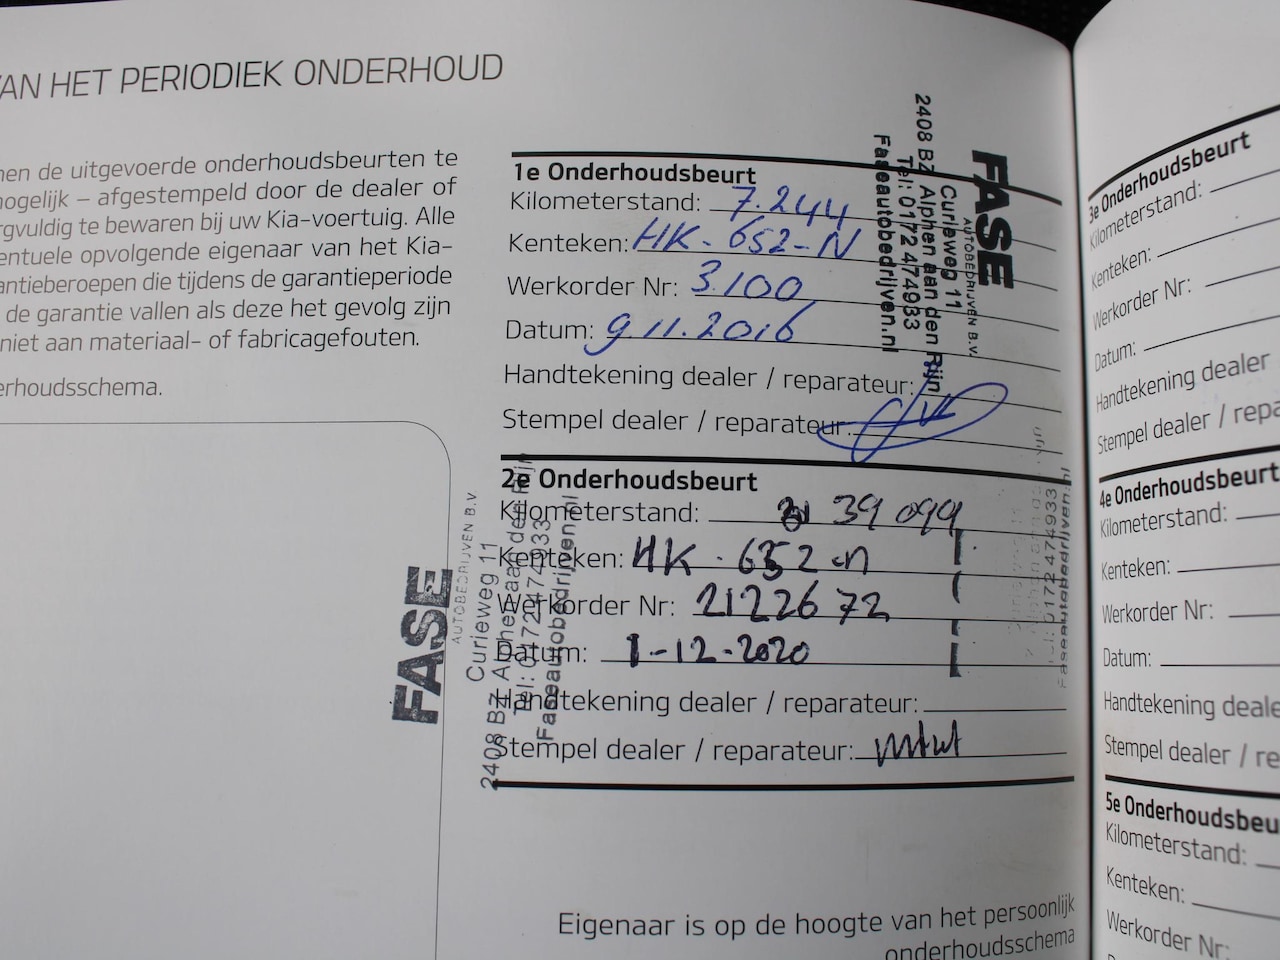 VAN HET PERIODIEK ONDERHOUD
de uitgevoerde onderhoudsbeurten te
– afgestempeld door de dealer of
te bewaren bij uw Kia-voertuig. Alle
opvolgende eigenaar van het Kia-
die tijdens de garantieperiode
de garantie vallen als deze het gevolg zijn
niet aan materiaal- of fabricagefouten.
1e Onderhoudsbeurt
Kilometerstand: 7.244
Kenteken: HK-652-N
Werkorder Nr: 3.100
Datum: 9.11.2016
Handtekening dealer / reparateur:
Stempel dealer / reparateur:
FASE
AUTOBEDRIJVEN B.V.
Curieweg 11
2408 BZ Alphen aan den Rijn
Tel: 0172 474933
Faseautobedrijven.nl
2e Onderhoudsbeurt
Kilometerstand: 39 099
Kenteken: HK - 652-n
Werkorder Nr: 2122672
Datum: 1-12-2020
Handtekening dealer / reparateur:
Stempel dealer / reparateur:
FASE
AUTOBEDRIJVEN B.V.
Curieweg 11
2408 BZ Alphen aan den Rijn
Tel: 0172 474933
Faseautobedrijven.nl
0172 474933
Faseautobedrijven.nl
Eigenaar is op de hoogte van het persoonlijk
onderhoudsschema
3e Onderhoudsbeurt
Kilometerstand:
Kenteken:
Werkorder Nr:
Datum:
Handtekening dealer
Stempel dealer /
4e Onderhoudsbeurt
Kilometerstand:
Kenteken:
Werkorder Nr:
Datum:
Handtekening
Stempel dealer /
5e
Kilometerstand:
Kenteken:
Werkorder Nr: